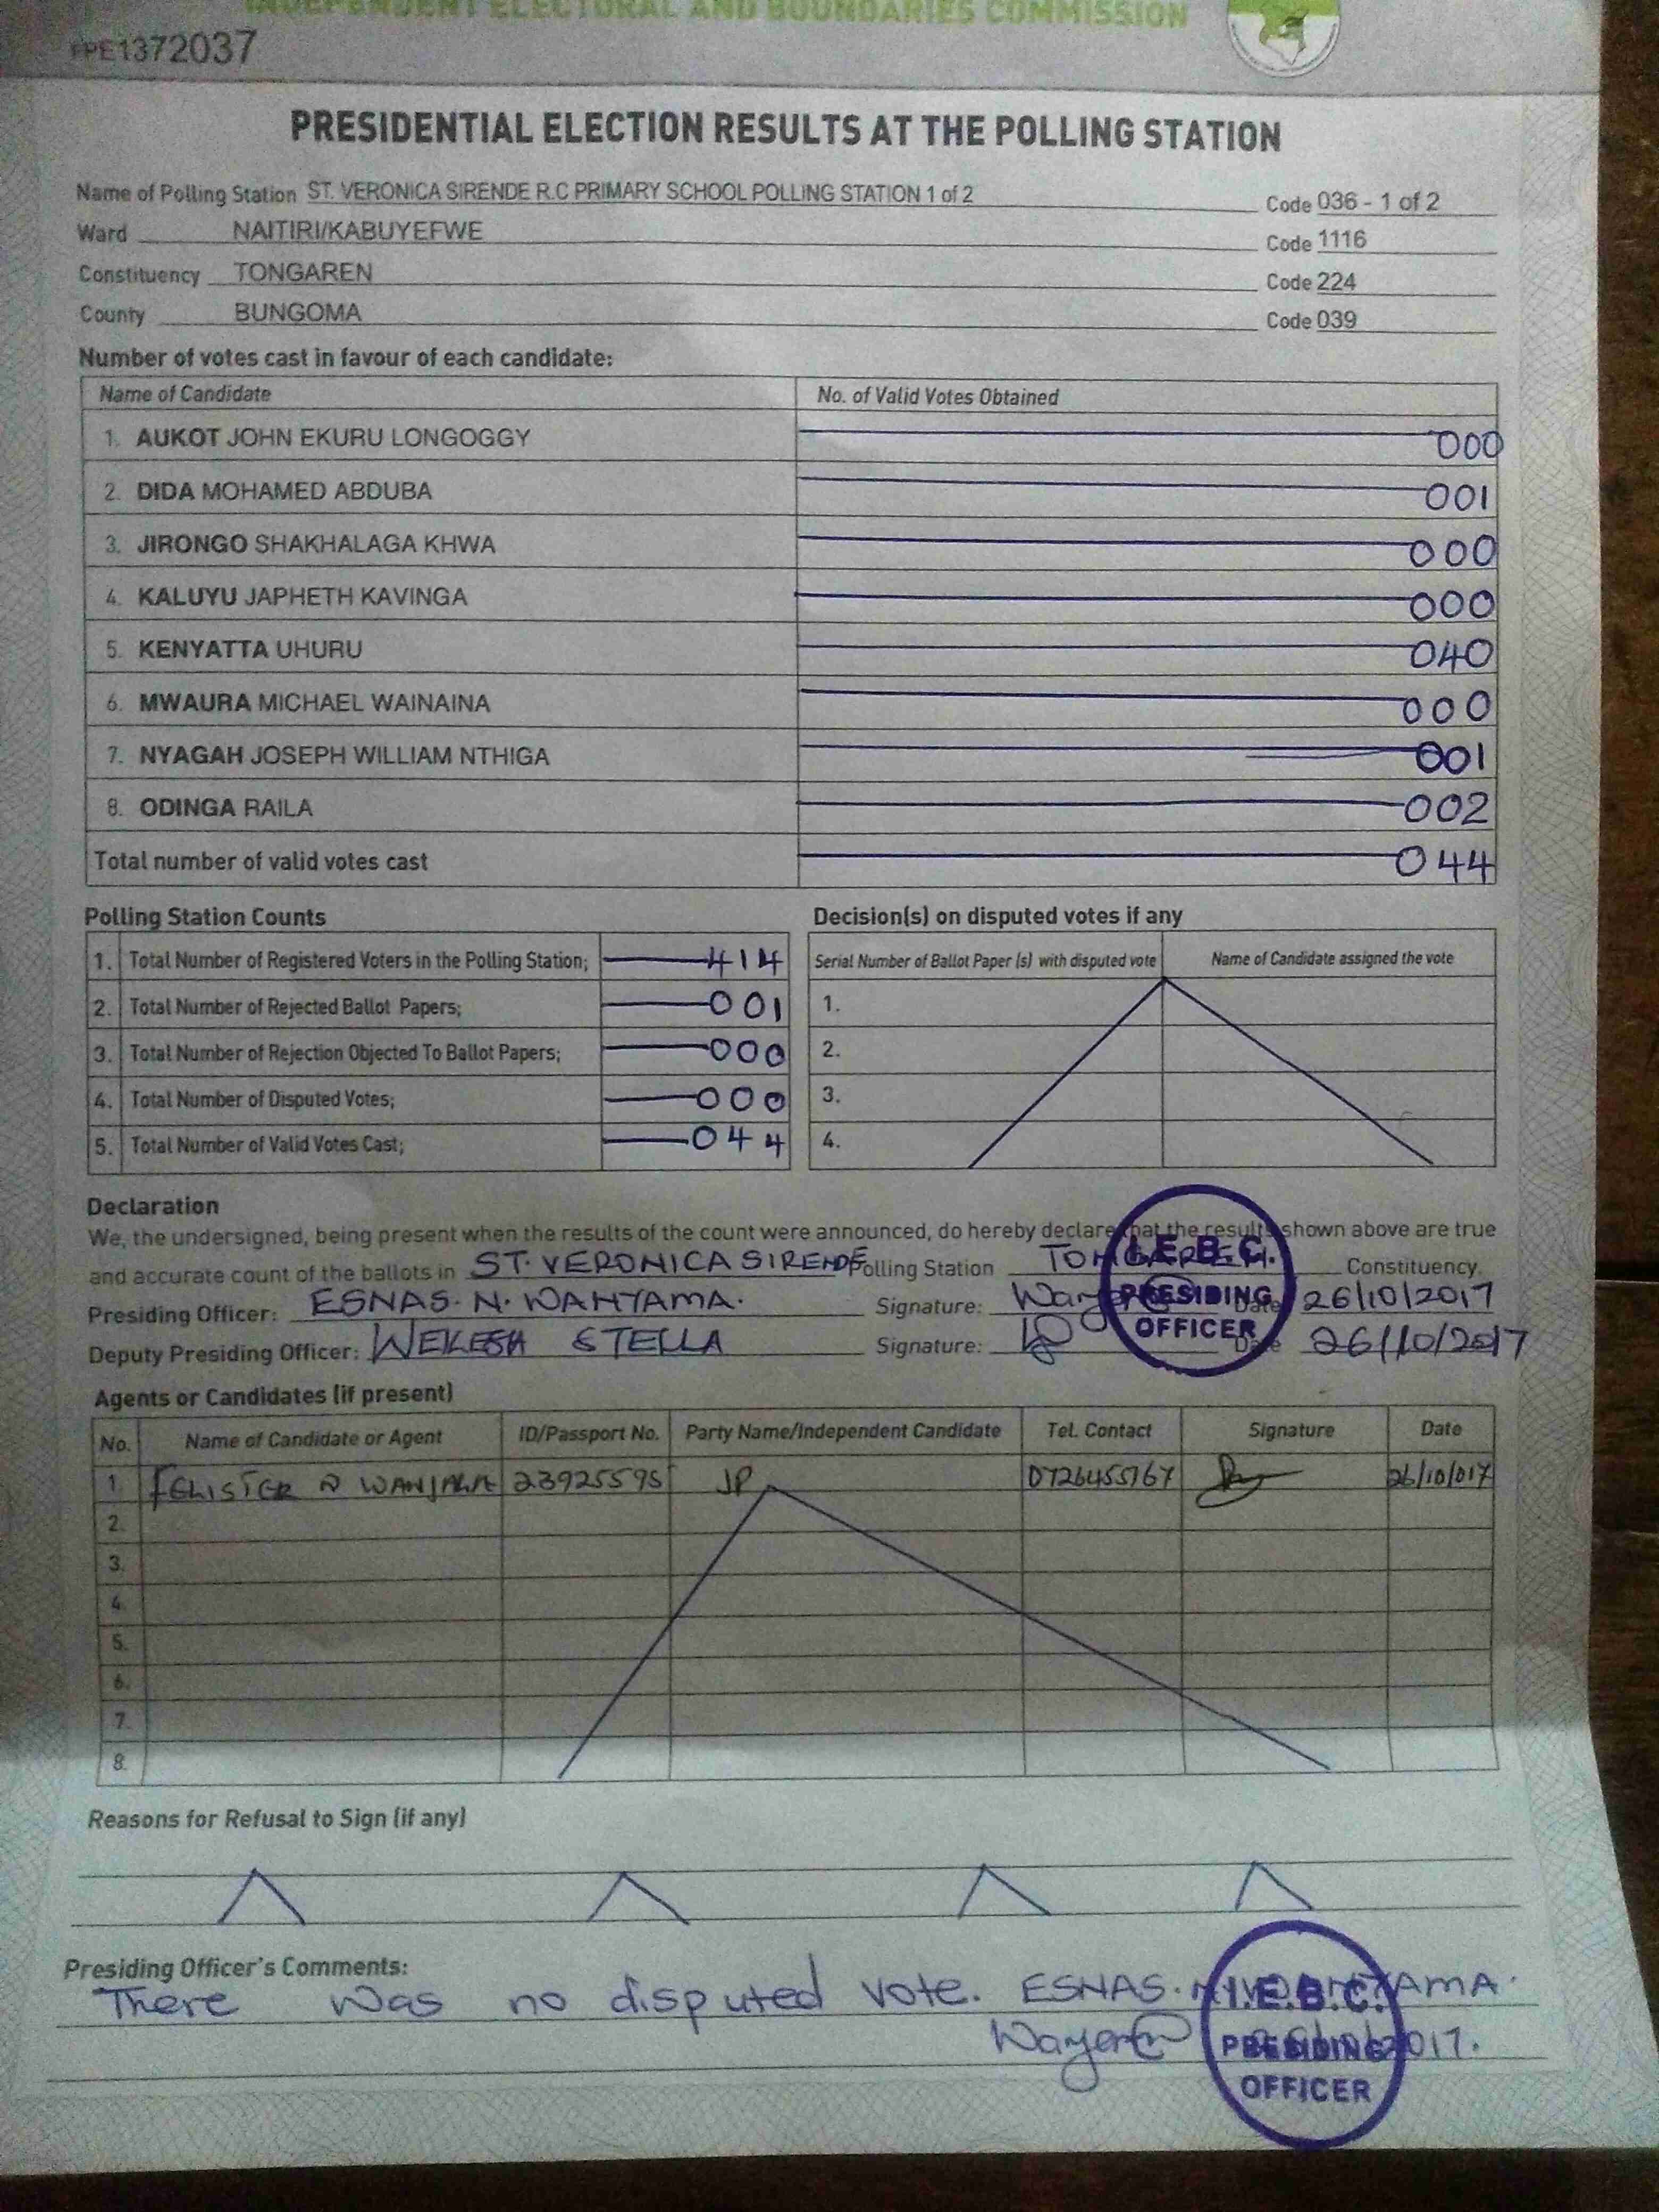 INDEPENDENT ELECTORAL AND BOUNDARIES COMMISSION
FPE1372037
PRESIDENTIAL ELECTION RESULTS AT THE POLLING STATION
Name of Polling Station ST. VERONICA SIRENDE R.C PRIMARY SCHOOL POLLING STATION 1 of 2 Code 036 - 1 of 2
Ward NAITIRI/KABUYEFWE Code 1116
Constituency TONGAREN Code 224
County BUNGOMA Code 039
Number of votes cast in favour of each candidate:
Name of Candidate No. of Valid Votes Obtained
1. AUKOT JOHN EKURU LONGOGGY 000
2. DIDA MOHAMED ABDUBA 001
3. JIRONGO SHAKHALAGA KHWA 000
4. KALUYU JAPHETH KAVINGA 000
5. KENYATTA UHURU 040
6. MWAURA MICHAEL WAINAINA 000
7. NYAGAH JOSEPH WILLIAM NTHIGA 001
8. ODINGA RAILA 002
Total number of valid votes cast 044
Polling Station Counts
1. Total Number of Registered Voters in the Polling Station; 414
2. Total Number of Rejected Ballot Papers; 001
3. Total Number of Rejection Objected To Ballot Papers; 000
4. Total Number of Disputed Votes; 000
5. Total Number of Valid Votes Cast; 044
Decision(s) on disputed votes if any
Serial Number of Ballot Paper (s) with disputed vote Name of Candidate assigned the vote
1.
2.
3.
4.
Declaration
We, the undersigned, being present when the results of the count were announced, do hereby declare that the results shown above are true
and accurate count of the ballots in ST. VERONICA SIRENDE Polling Station TONGAREN. Constituency.
Presiding Officer: ESNAS. N. WANYAMA. Signature: Date 26/10/2017
Deputy Presiding Officer: WEKESA STELLA Signature: Date 26/10/2017
I.E.B.C.
PRESIDING
OFFICER
Agents or Candidates (if present)
No. Name of Candidate or Agent ID/Passport No. Party Name/Independent Candidate Tel. Contact Signature Date
1 FELISTER N WANJALA 23925595 JP 0726455767 26/10/017
2.
3.
4.
5.
6.
7.
8.
Reasons for Refusal to Sign (if any)
Presiding Officer's Comments:
There was no disputed vote. ESNAS. N. WANYAMA.
26/10/2017.
I.E.B.C.
PRESIDING
OFFICER